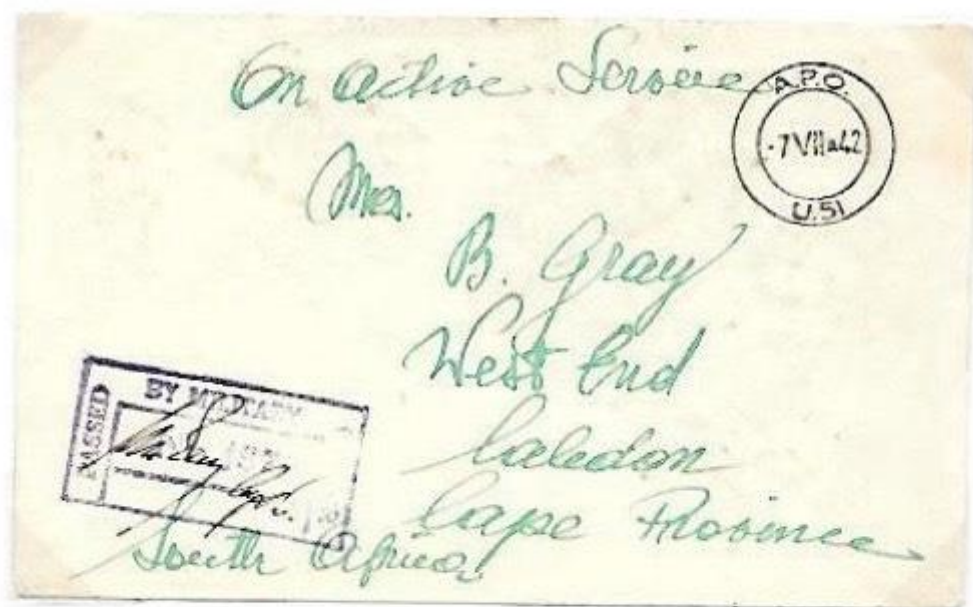 On Active Service
A.P.O.
-7 VII 42
U.51
Mrs.
B. Gray
West End
Caledon
Cape Province
South Africa
PASSED
BY MILITARY